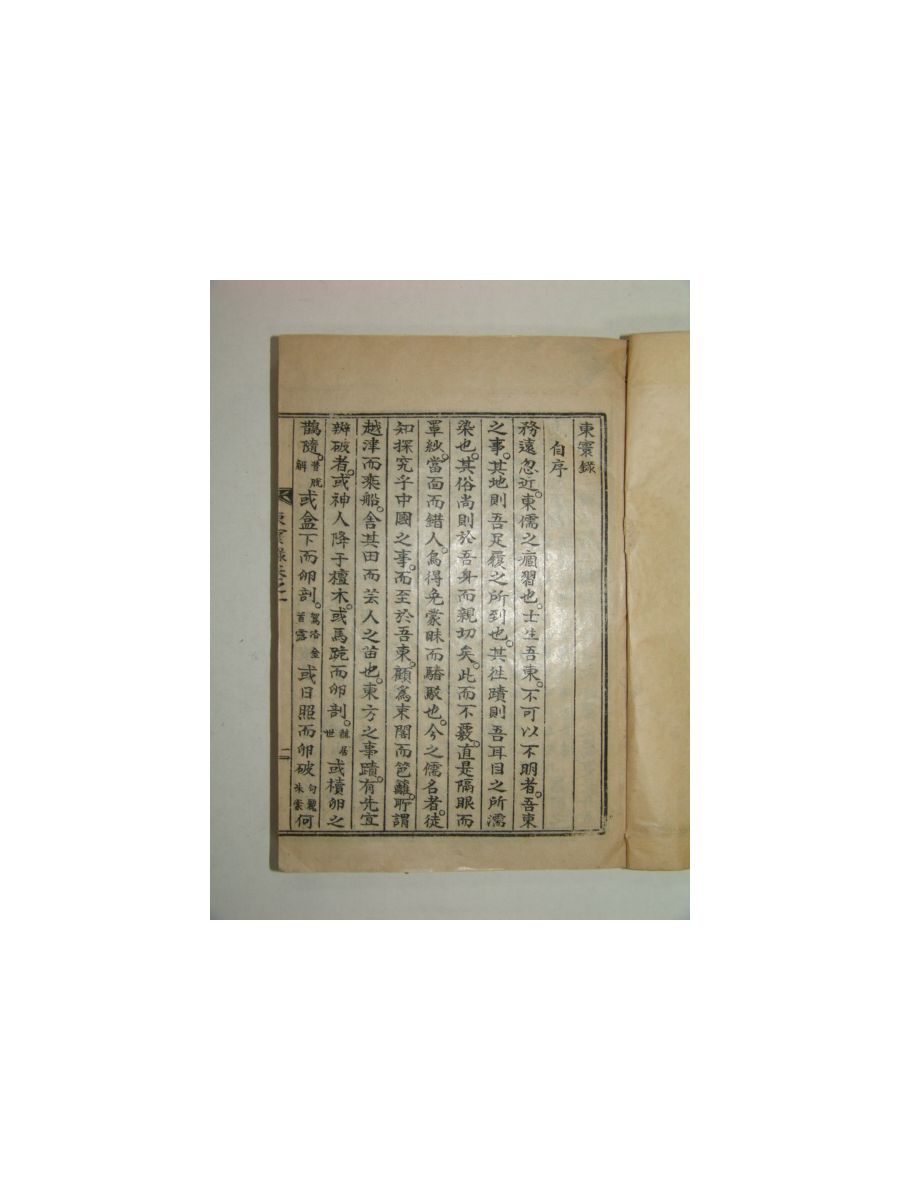 東寰錄
自序
務遠忽近。東儒之痼習也。士生吾東。不可以不明者。吾東
之事。其地則吾足履之所到也。其往蹟則吾耳目之所濡
染也。其俗尚則於吾身而親切矣。此而不覈。直是隔眼而
罩紗。當面而錯人。烏得免蒙昧而駁也。今之儒名者。徒
知探究乎中國之事。而至於吾東。顧爲束閣而笆籬。所謂
越津而乘船。舍其田而芸人之苗也。東方之事蹟。有先宜
辨破者。或神人降于檀木。或馬跪而卵剖。赫居世或櫝卵之
鵲隨。昔脫解或盒下而卵剖。駕洛金首露或日照而卵破何
東寰錄卷之一
二